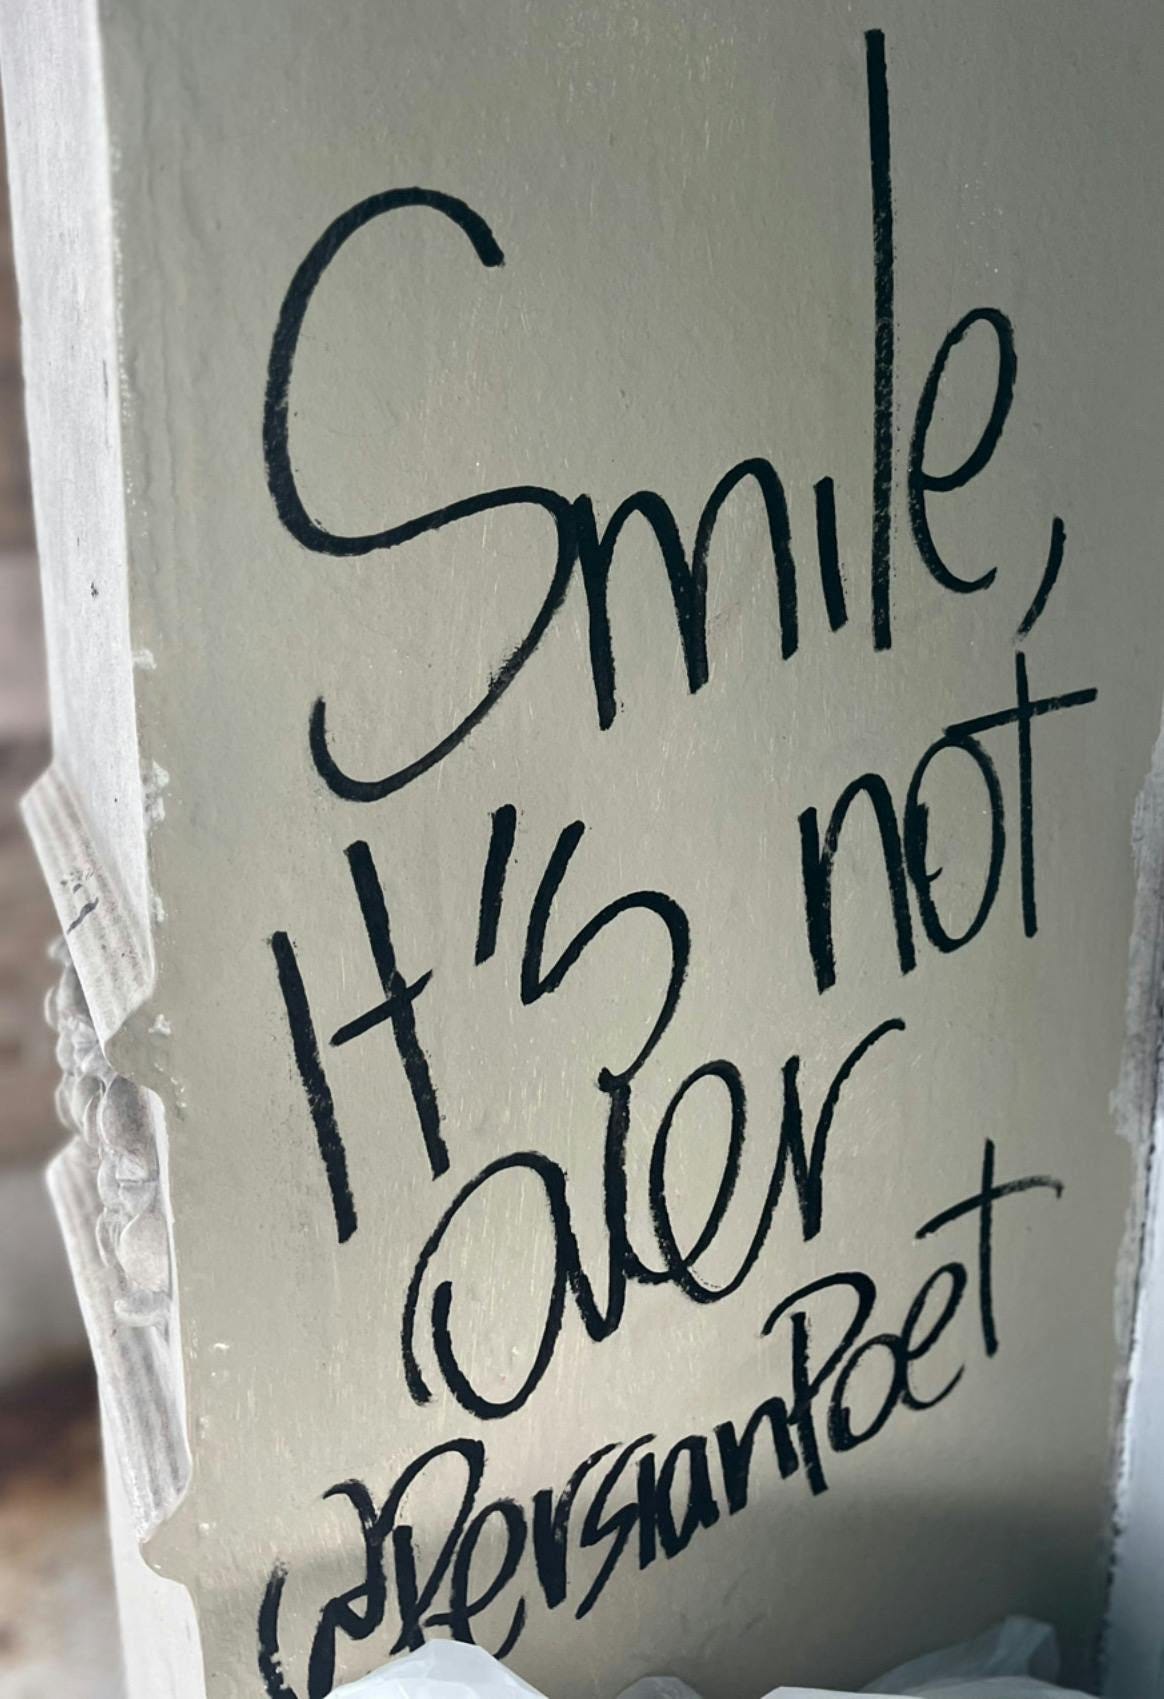 Smile,
It's not
over
@PersianPoet